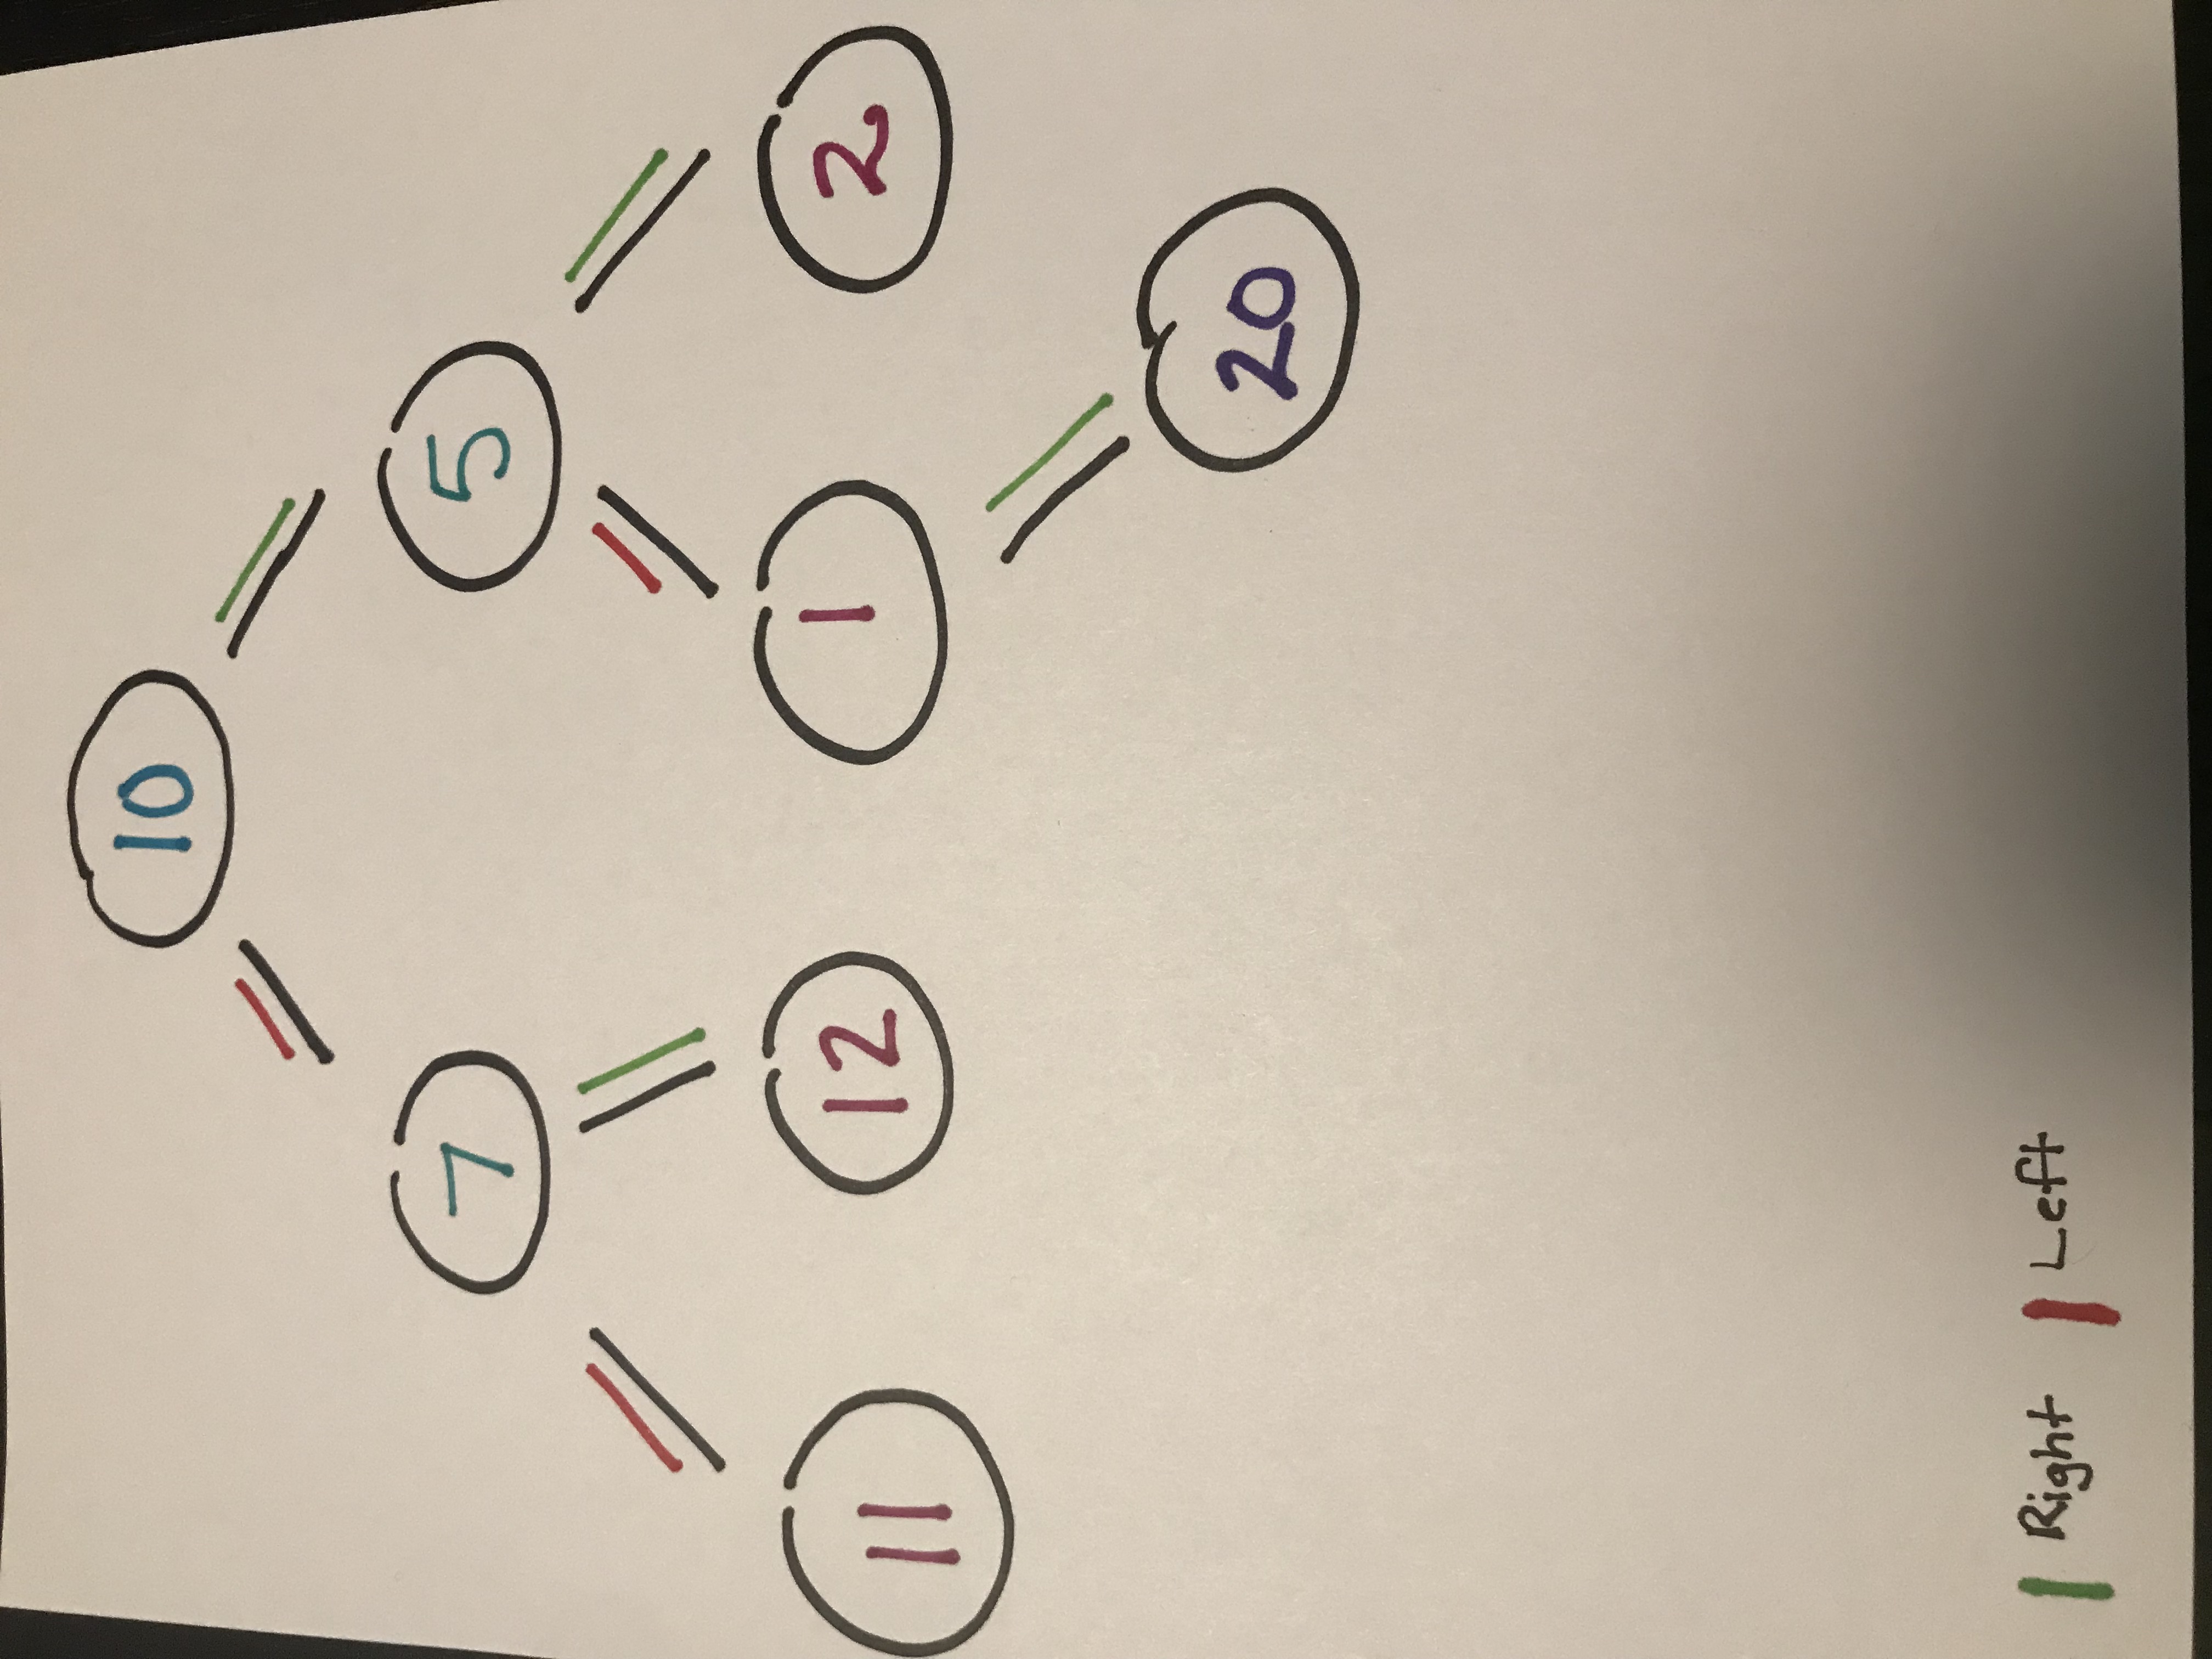 10
7 5
11 12 1 2
20
Right Left